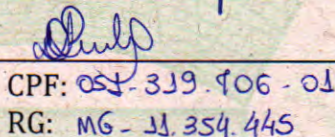 CPF: 051-319.906-01
RG: MG-11.354.445